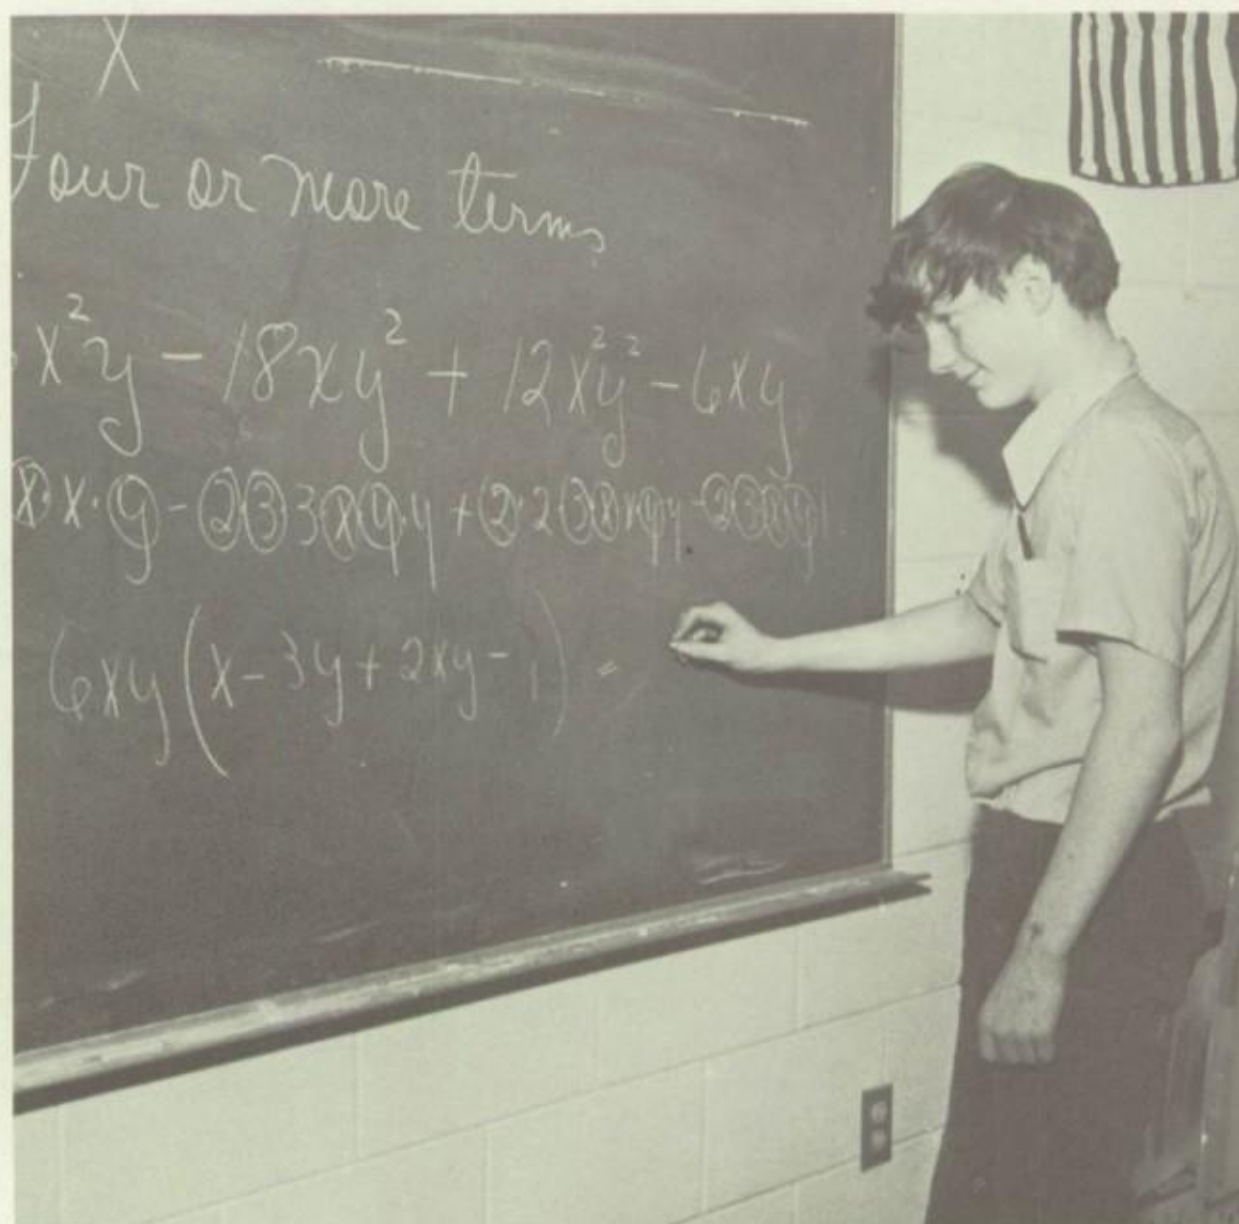 X
Four or more terms
x²y - 18xy² + 12x²y² - 6xy
x·x·y - 2·3·3·x·y·y + 2·2·3·x·x·y·y - 2·3·x·y·1
6xy(x - 3y + 2xy - 1) =